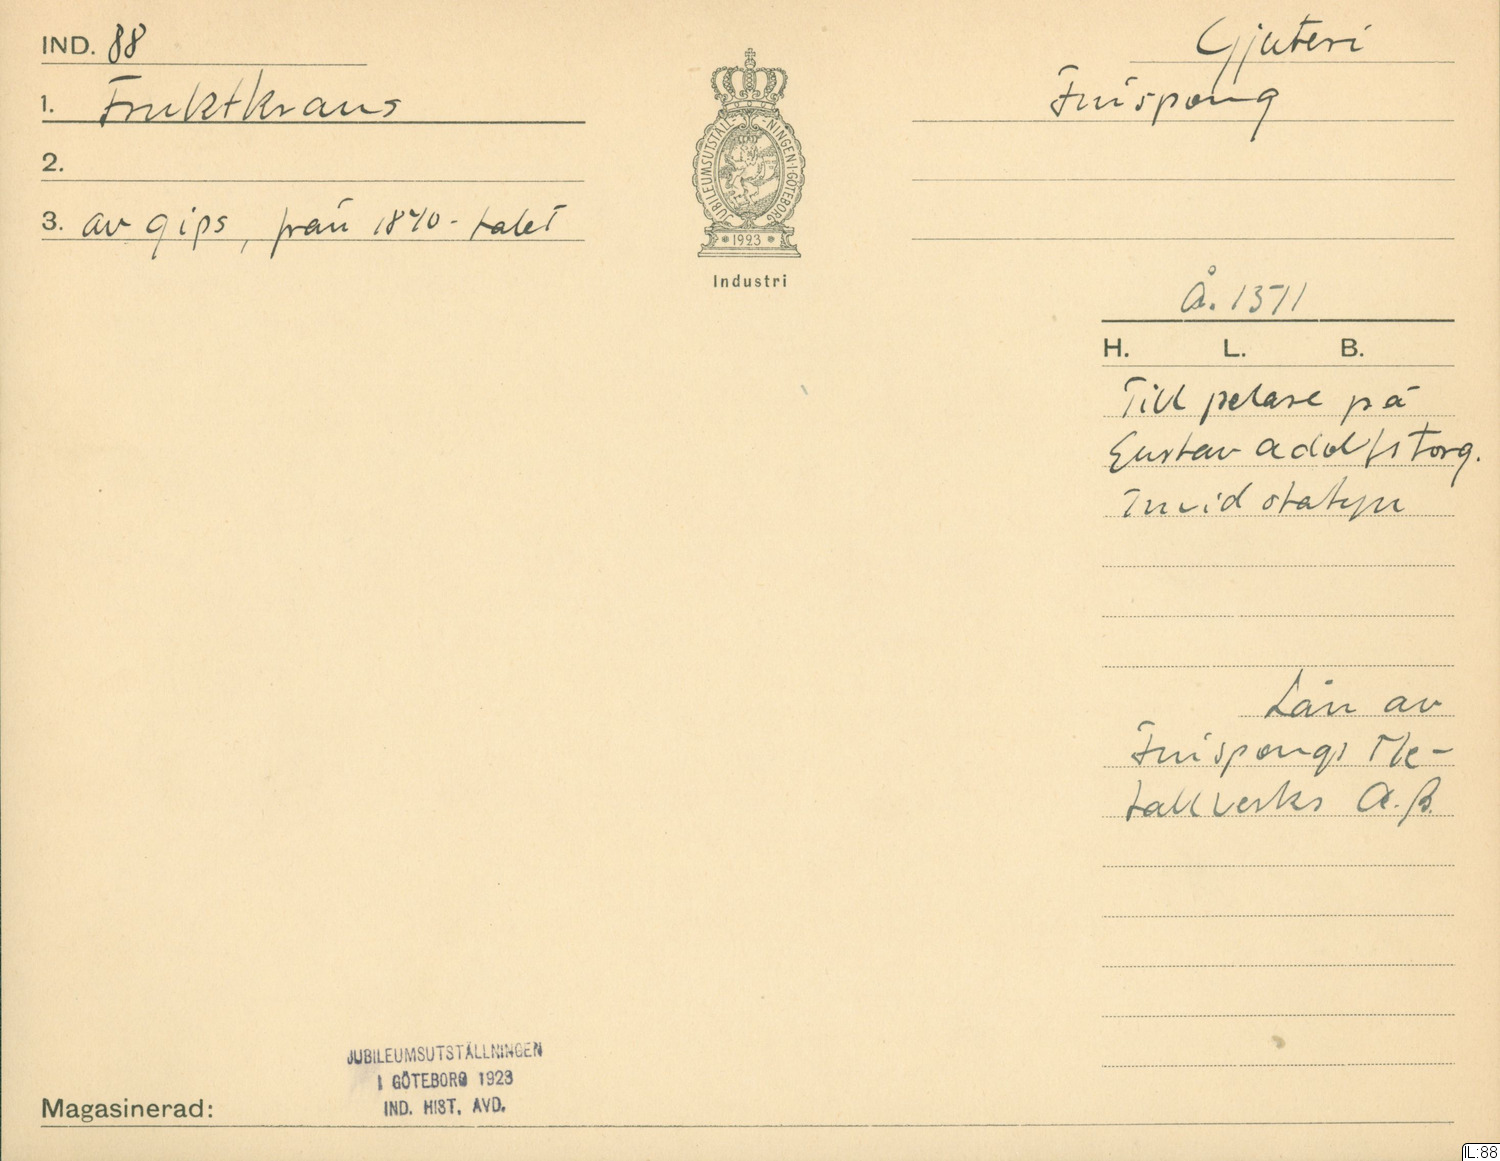 IND. 88
1. Fruktkrans
2.
3. av gips, från 1870-talet
JUBILEUMSUTSTÄLL-NINGEN·I·GÖTEBORG
1923
Industri
Gjuteri
Finspong
Å. 1371
H. L. B.
Till pelare på
Gustav Adolfs torg.
Invid statyn
Lån av
Finspongs Me-
tallverks A.B.
JUBILEUMSUTSTÄLLNINGEN
I GÖTEBORG 1923
IND. HIST. AVD.
Magasinerad:
IL:88